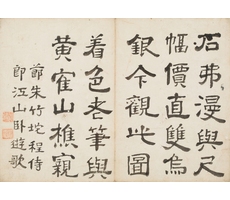 石弗漫與尺
幅價直雙烏
銀今觀此圖
着色老筆與
黃寉山樵窺
節朱竹垞程侍
郎江山臥遊歌